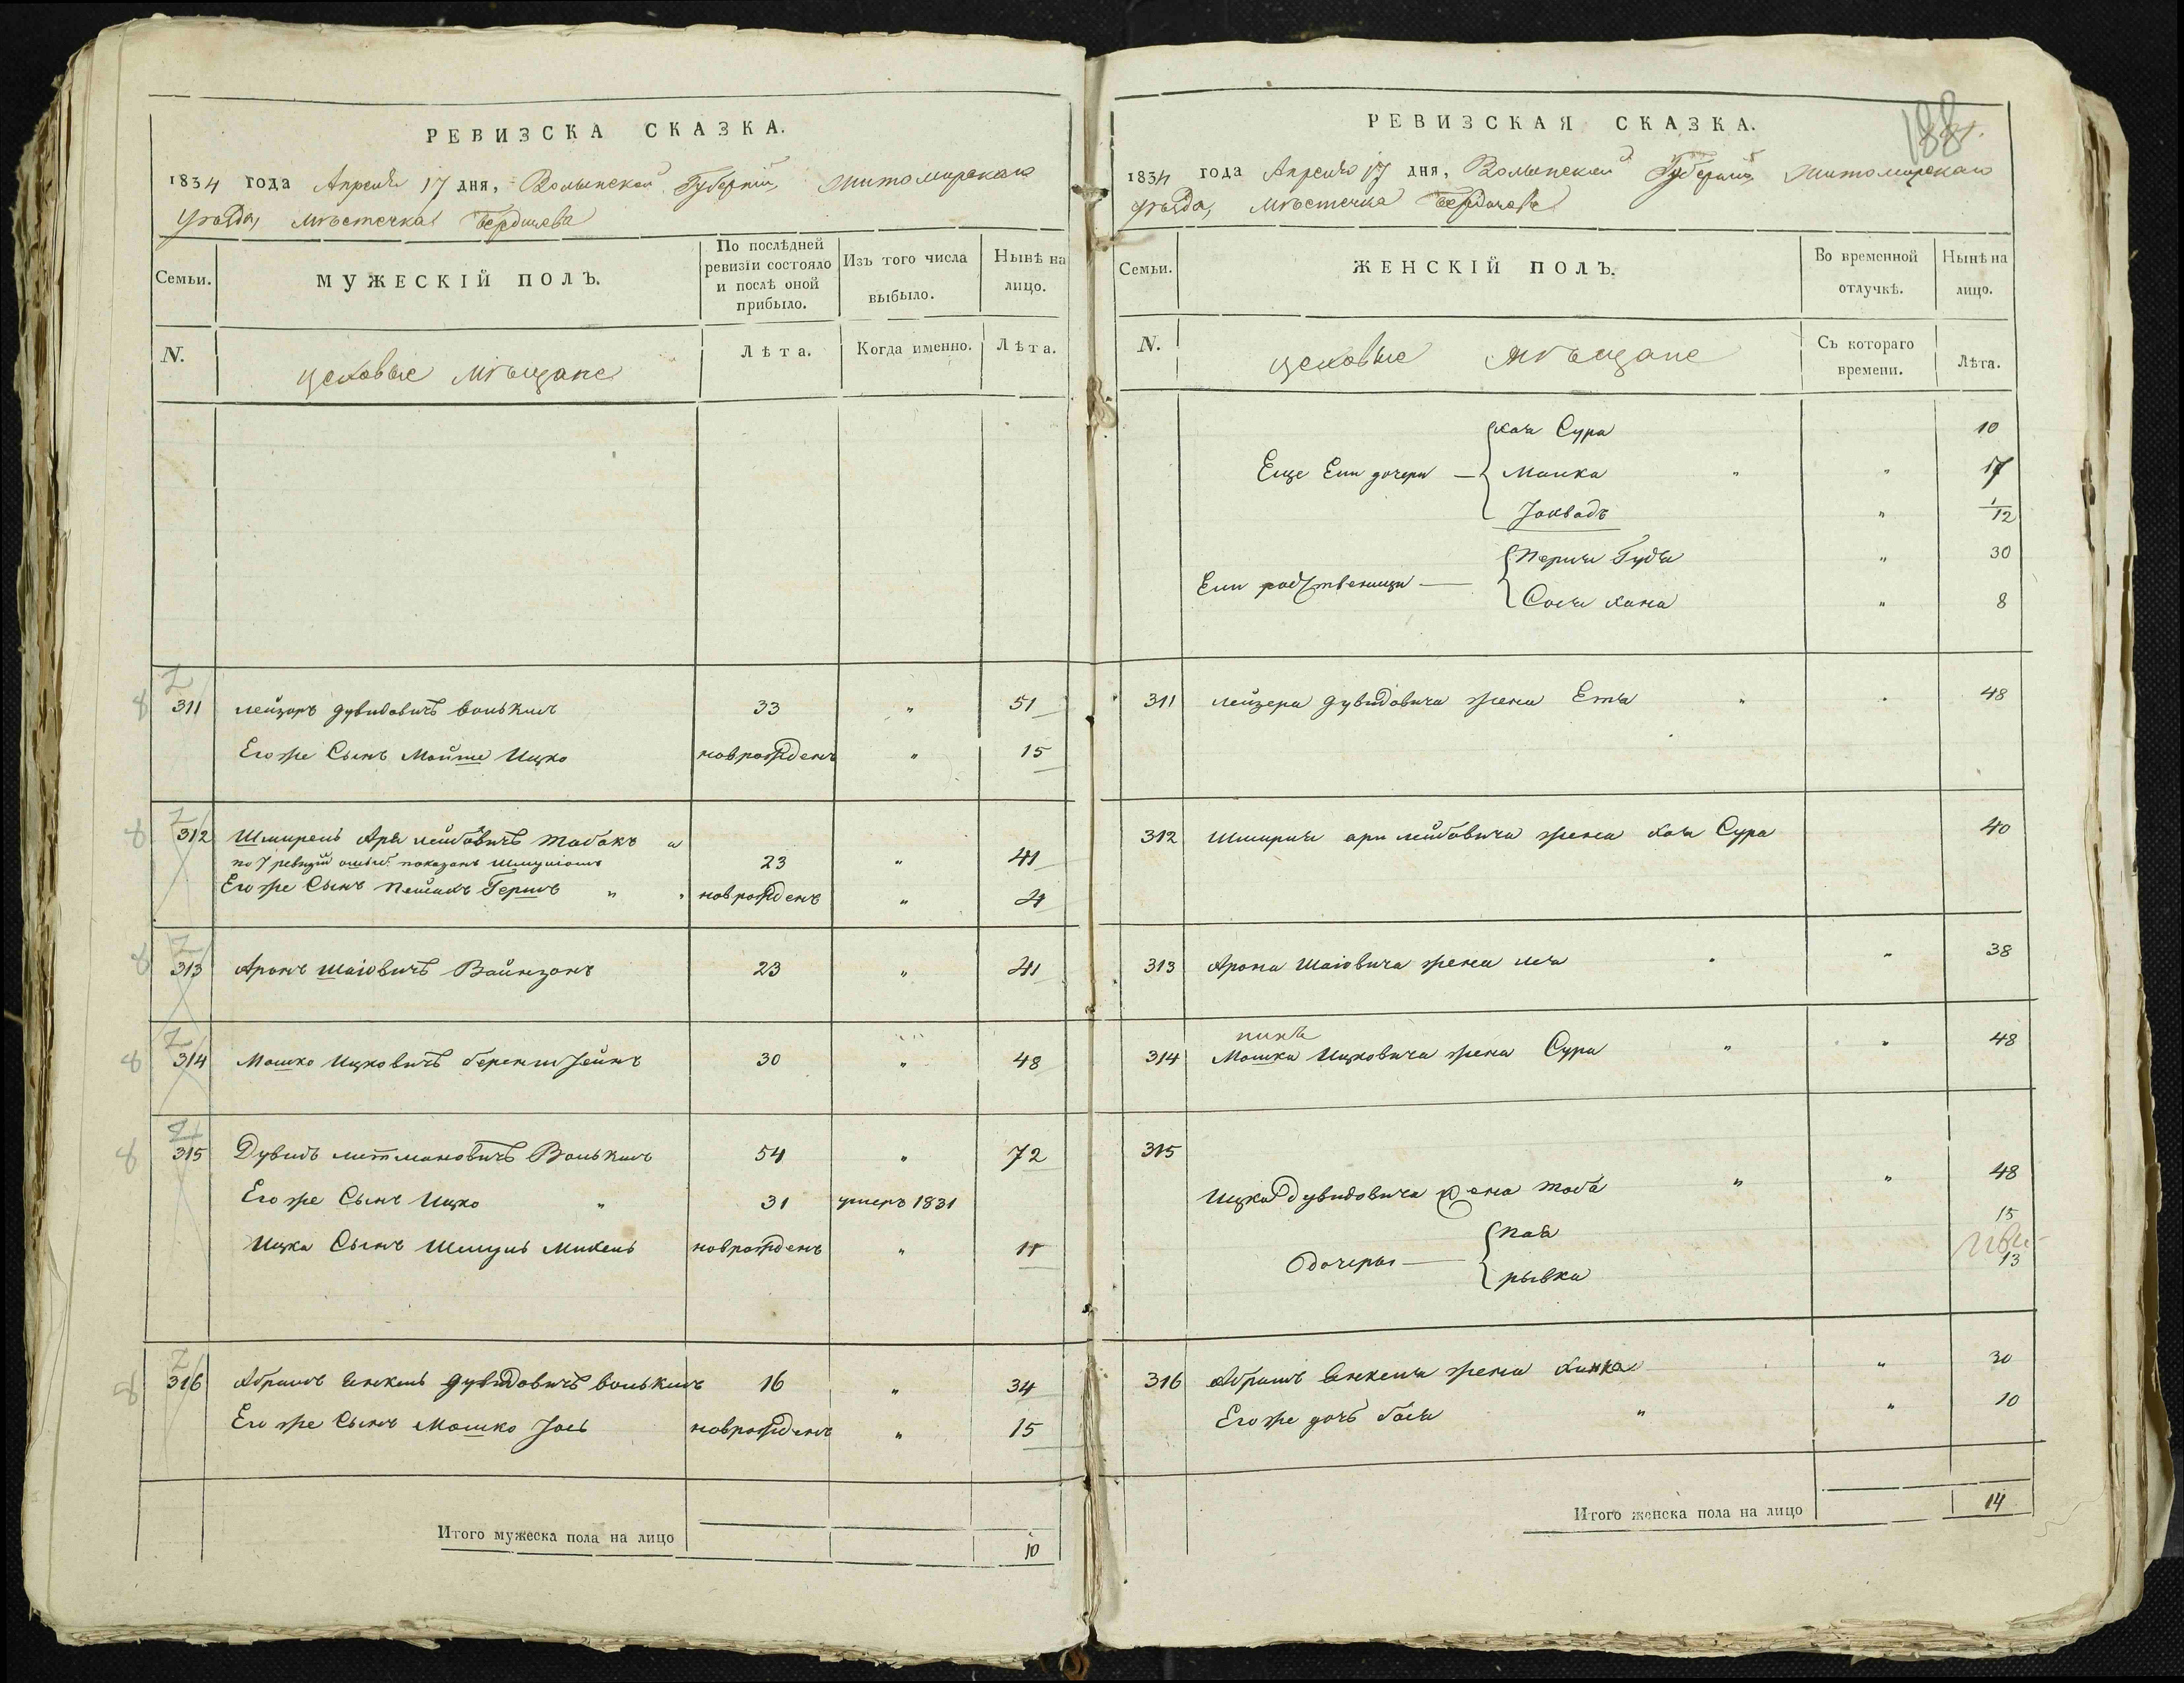 РЕВИЗСКА СКАЗКА.
1834 года Апреля 17 дня, Волынской Губерніи, Житомирскаго
уѣзда, мѣстечка Бердичева
Семьи.
МУЖЕСКІЙ ПОЛЪ.
По послѣдней ревизіи состояло и послѣ оной прибыло.
Изъ того числа выбыло.
Нынѣ на лицо.
N.
цеховые мѣщане
Лѣта.
Когда именно.
Лѣта.
311 лейзоръ дувидовичъ волькисъ 33 " 51
Его же Сынъ Мойше Ицко новрожденъ " 15
312 Шмирель Арѣ лейбовичъ Табакъ и
по 7 ревизіи ошыб. показанъ Шмуліомъ 23 " 41
Его же Сынъ Пейсахъ Гершъ " " новрожденъ " 4
313 Аронъ Шаіовичъ Вайнзонъ 23 " 41
314 Мошко Ицковичъ беренштейнъ 30 " 48
315 Дувидъ литмановичъ Волькисъ 54 " 72
Его же Сынъ Ицко " 31 умеръ 1831
Ицка Сынъ Шмуль Михель новрожденъ " 11
316 Абрамъ Янкель дувидовичъ волькисъ 16 " 34
Его же Сынъ Мошко Іось новрожденъ " 15
Итого мужеска пола на лицо 10
РЕВИЗСКАЯ СКАЗКА.
188
1834 года Апреля 17 дня, Волынской Губерніи, Житомирскаго
уѣзда, мѣстечка Бердичева
Семьи.
ЖЕНСКІЙ ПОЛЪ.
Во временной отлучкѣ.
Нынѣ на лицо.
N.
цеховые мѣщане
Съ котораго времени.
Лѣта.
хая Сура 10
Еще Ево дочери — Малка " " 17
Іохвадъ " 1/12
Перля Гудя " 30
Ево родственици — Сося хана " 8
311 лейзера дувидовича жена Етя " " 48
312 Шмиреля ари лейбовича жена хая Сура 40
313 Арона Шаіовича жена лея " " 38
314 Мошка Ицковича жена Сура " " 48
315
Ицка дувидовича жена Тоба " " 48
Одочеры — Пая 15
рывка 13
316 Абрамъ Янкеля жена ханка " 30
Его же дочъ бася " " 10
Итого женска пола на лицо 14